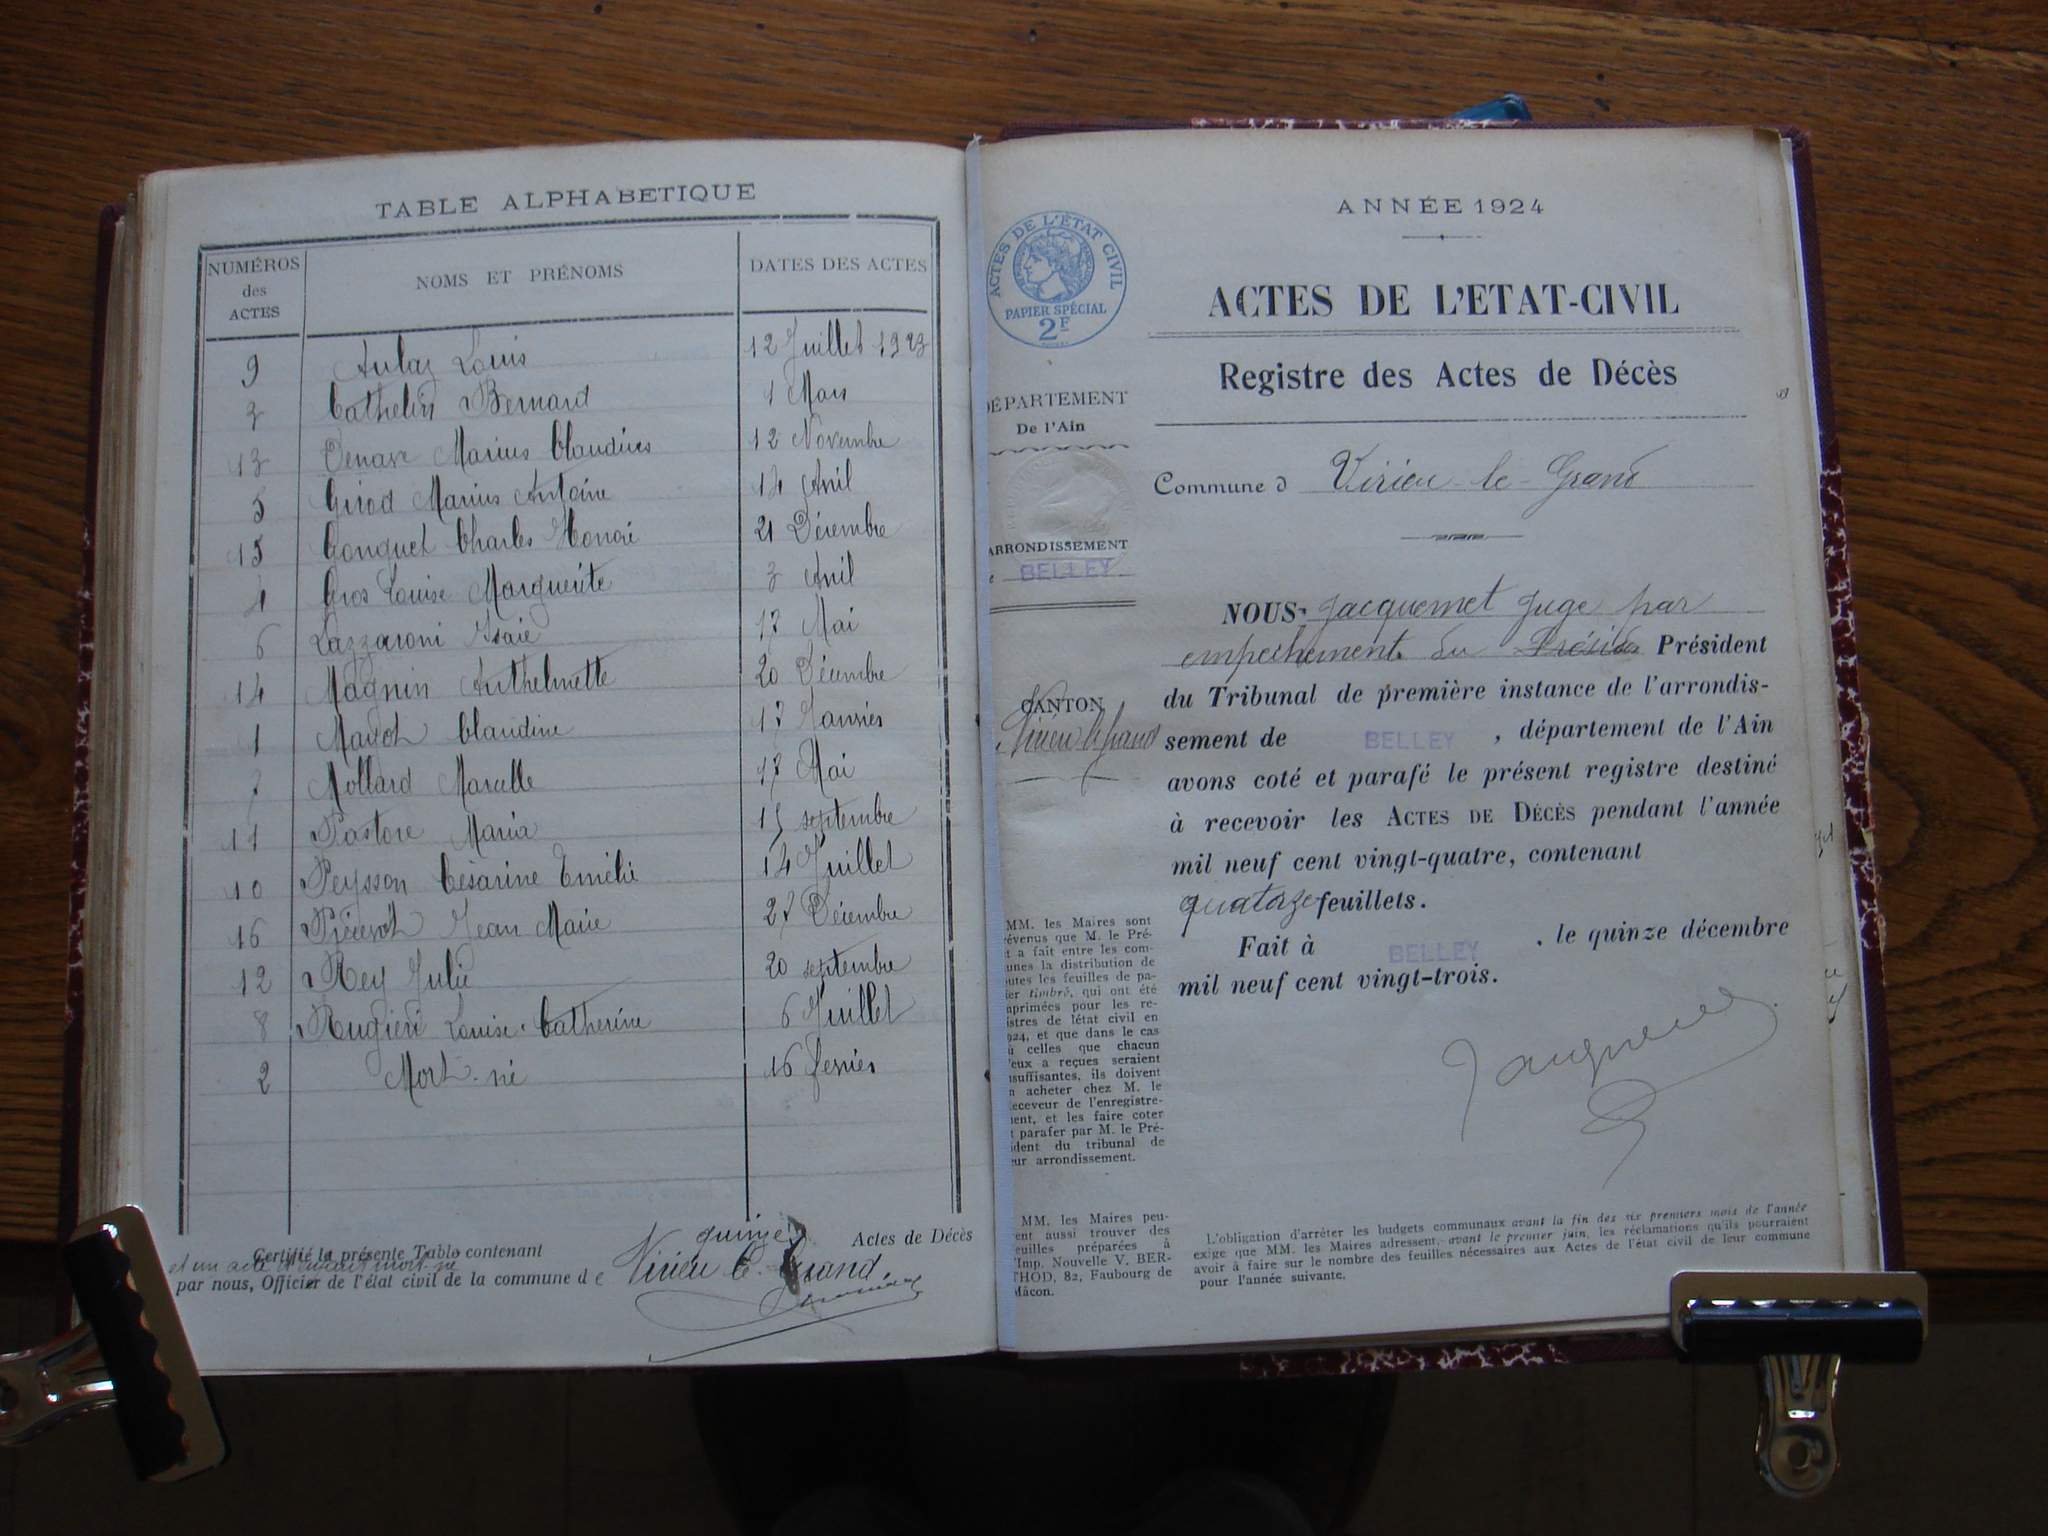 TABLE ALPHABETIQUE
NUMÉROS
des
ACTES
NOMS ET PRÉNOMS
DATES DES ACTES
9 Louis 12 Juillet 1923
3 Cathelin Bernard 1 Mars
13 Marius Claudius 12 Novembre
5 Girod Marius Antoine 14 Avril
15 Gonguet Charles Honoré 21 Décembre
4 Gros Louise Marguerite 3 Avril
6 Lazzaroni Isaie 17 Mai
14 Magnin Anthelmette 20 Décembre
1 Claudine 17 Janvier
7 Mollard Marcelle 17 Mai
11 Pastore Maria 15 septembre
10 Peysson Césarine Emélie 14 Juillet
16 Jean Marie 27 Décembre
12 Rey Julie 20 septembre
8 Rugieri Louise Catherine 6 Juillet
2 Mort-né 16 fevrier
quinze
Certifié la présente Table contenant Actes de Décès
et un acte d'enfant mort-né
par nous, Officier de l'état civil de la commune de Virieu l. Grand.
ACTES DE L'ÉTAT CIVIL
PAPIER SPÉCIAL
2F
DÉPARTEMENT
De l'Ain
ARRONDISSEMENT
BELLEY
CANTON
Virieu le grand
MM. les Maires sont
évenus que M. le Pré-
t a fait entre les com-
unes la distribution de
utes les feuilles de pa-
ier timbré, qui ont été
mprimées pour les re-
istres de létat civil en
924, et que dans le cas
ù celles que chacun
'eux a reçues seraient
nsuffisantes, ils doivent
n acheter chez M. le
eceveur de l'enregistre-
ent, et les faire coter
t parafer par M. le Pré-
ident du tribunal de
eur arrondissement.
MM. les Maires peu-
ent aussi trouver des
euilles préparées à
'Imp. Nouvelle V. BER-
THOD, 82, Faubourg de
Mâcon.
ANNÉE 1924
ACTES DE L'ETAT-CIVIL
Registre des Actes de Décès
Commune d Virieu-le-Grand
NOUS, Jacquemet juge par
empechement du Présid Président
du Tribunal de première instance de l'arrondis-
sement de BELLEY, département de l'Ain
avons coté et parafé le présent registre destiné
à recevoir les ACTES DE DÉCÈS pendant l'année
mil neuf cent vingt-quatre, contenant
quatorze feuillets.
Fait à BELLEY, le quinze décembre
mil neuf cent vingt-trois.
L'obligation d'arrêter les budgets communaux avant la fin des six premiers mois de l'année
exige que MM. les Maires adressent, avant le premier juin, les réclamations qu'ils pourraient
avoir à faire sur le nombre des feuilles nécessaires aux Actes de l'état civil de leur commune
pour l'année suivante.